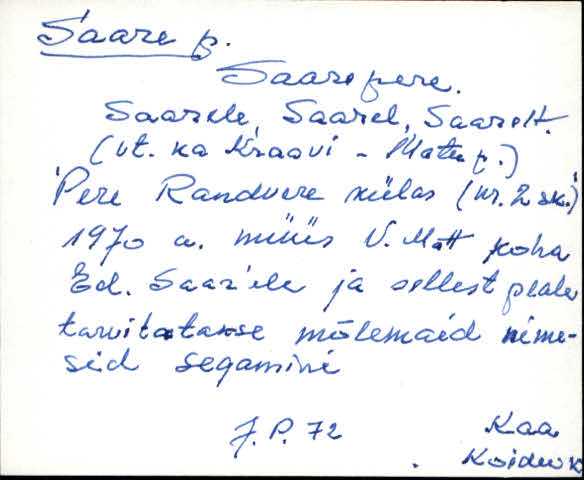 Saare p.
Saarepere.
Saarele, Saarel, Saarelt.
(vt. ka Kraavi - Matu p.)
Pere Randvere külas (nr. 2 sk.)
1970 a. müüs V. Matt koha
Ed. Saar'ele ja sellest peale
tarvitatakse mõlemaid nime-
sid segamini
J.P. 72
Kaa
Koidu k